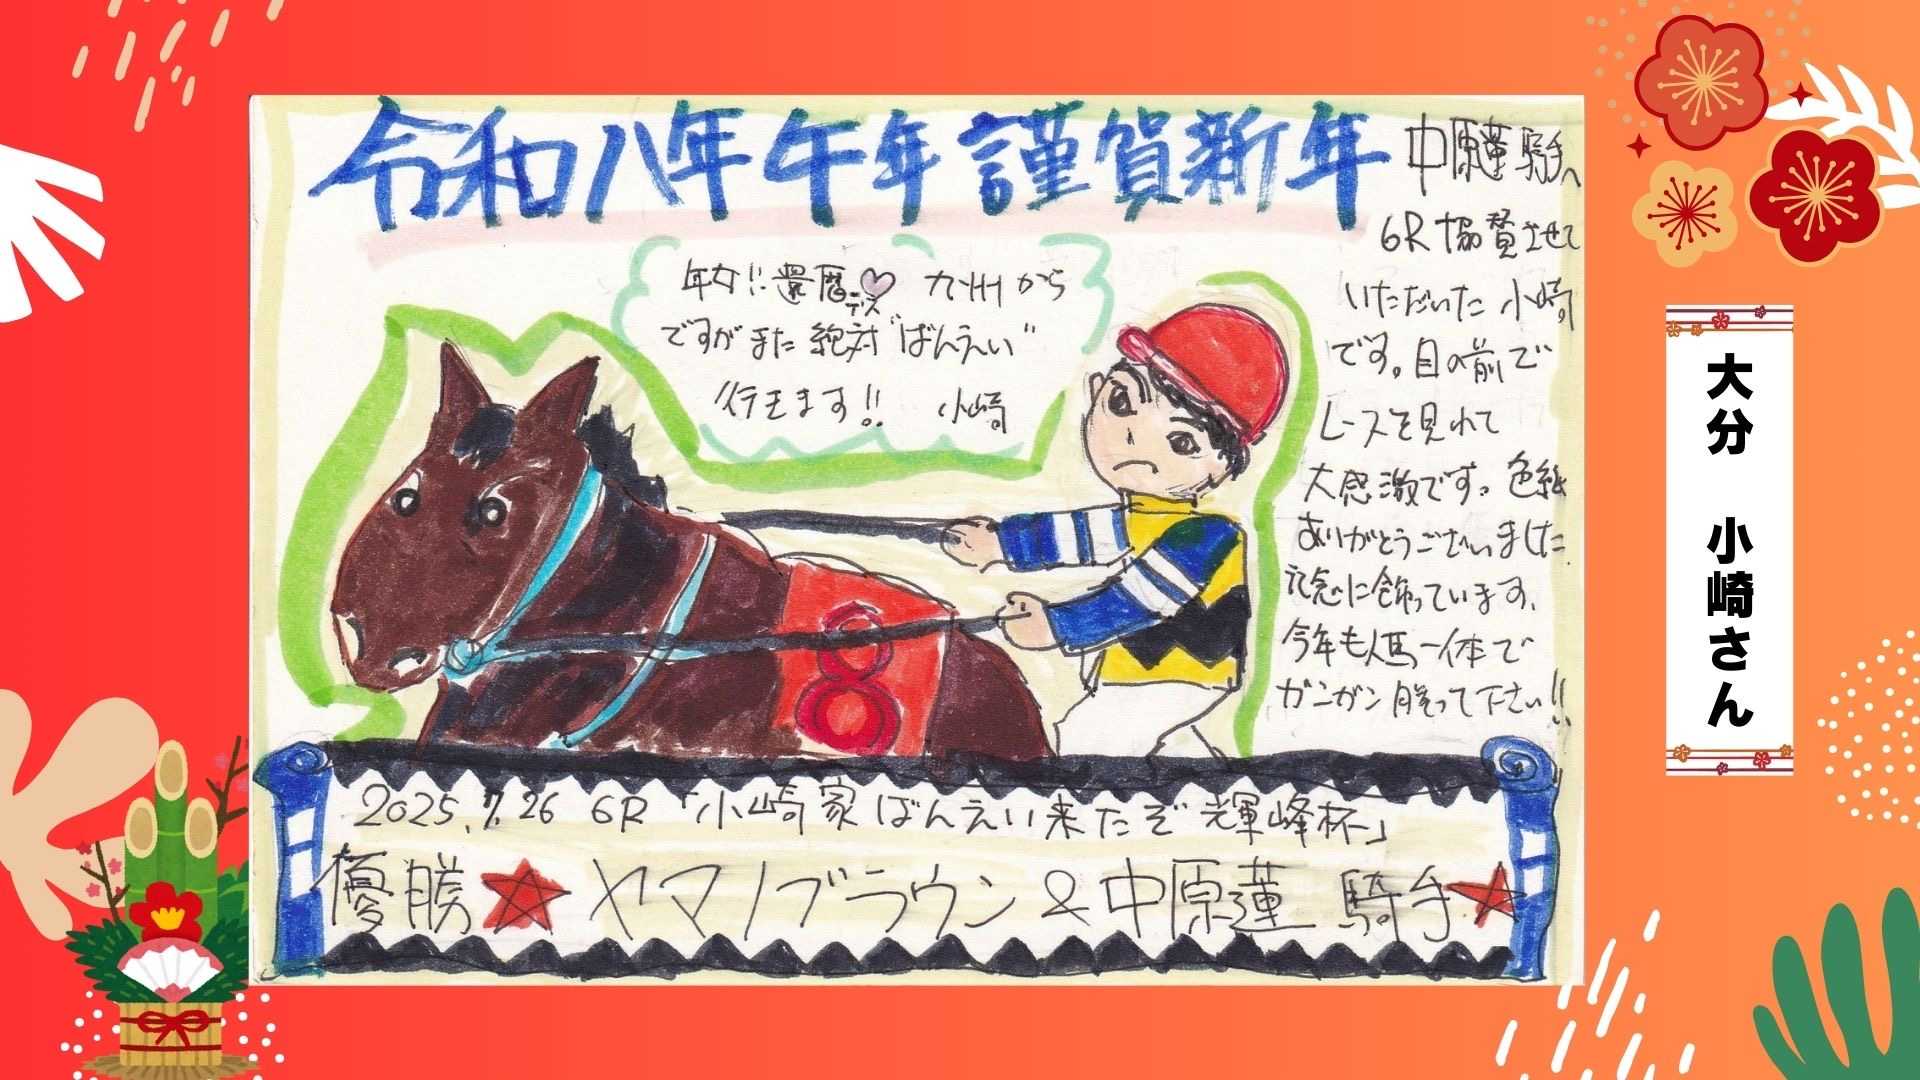 令和八年午年謹賀新年
中原蓮騎手へ
6R協賛させて
いただいた小崎
です。目の前で
レースを見れて
大感激です。色紙
ありがとうございました
記念に飾っています。
今年も人馬一体で
ガンガン勝って下さい!!
年女!!還暦デス 九州から
ですがまた絶対"ばんえい"
行きます!! 小崎
8
2025.7.26 6R「小崎家ばんえい来たぞ輝峰杯」
優勝★ヤマノブラウン&中原蓮騎手★
大分 小崎さん